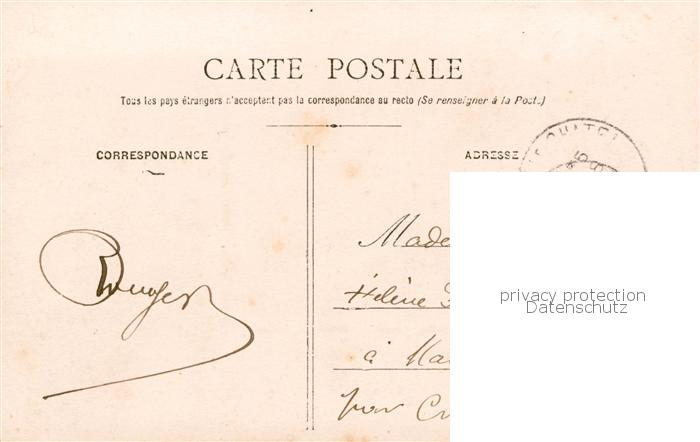 CARTE POSTALE
Tous les pays étrangers n'acceptent pas la correspondance au recto (Se renseigner à la Poste)
CORRESPONDANCE
ADRESSE
Made
Hélène
à Ma
par Cr
privacy protection
Datenschutz